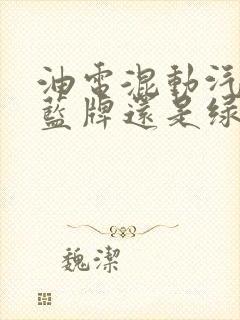 油電混動汽
藍牌還是綠
魏潔